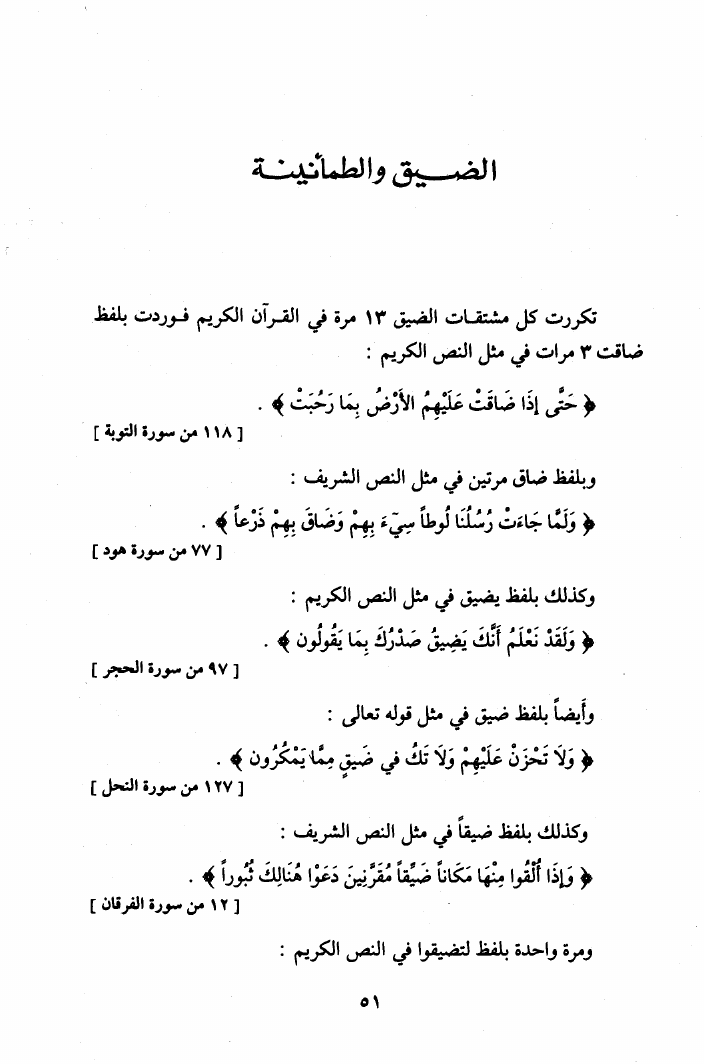 الضيق والطمأنينة
تكررت كل مشتقات الضيق ١٣ مرة في القرآن الكريم فوردت بلفظ
ضاقت ٣ مرات في مثل النص الكريم :
﴿ حَتَّى إِذَا ضَاقَتْ عَلَيْهِمُ الأَرْضُ بِمَا رَحُبَتْ ﴾ .
[ ١١٨ من سورة التوبة ]
وبلفظ ضاق مرتين في مثل النص الشريف :
﴿ وَلَمَّا جَاءَتْ رُسُلُنَا لُوطاً سِيءَ بِهِمْ وَضَاقَ بِهِمْ ذَرْعاً ﴾ .
[ ٧٧ من سورة هود ]
وكذلك بلفظ يضيق في مثل النص الكريم :
﴿ وَلَقَدْ نَعْلَمُ أَنَّكَ يَضِيقُ صَدْرُكَ بِمَا يَقُولُون ﴾ .
[ ٩٧ من سورة الحجر ]
وأيضاً بلفظ ضيق في مثل قوله تعالى :
﴿ وَلاَ تَحْزَنْ عَلَيْهِمْ وَلاَ تَكُ في ضَيقٍ مِمَّا يَمْكُرُون ﴾ .
[ ١٢٧ من سورة النحل ]
وكذلك بلفظ ضيقاً في مثل النص الشريف :
﴿ وَإِذَا أُلْقُوا مِنْهَا مَكَاناً ضَيِّقاً مُقَرَّنِينَ دَعَوْا هُنَالِكَ ثُبُوراً ﴾ .
[ ١٢ من سورة الفرقان ]
ومرة واحدة بلفظ لتضيقوا في النص الكريم :
٥١